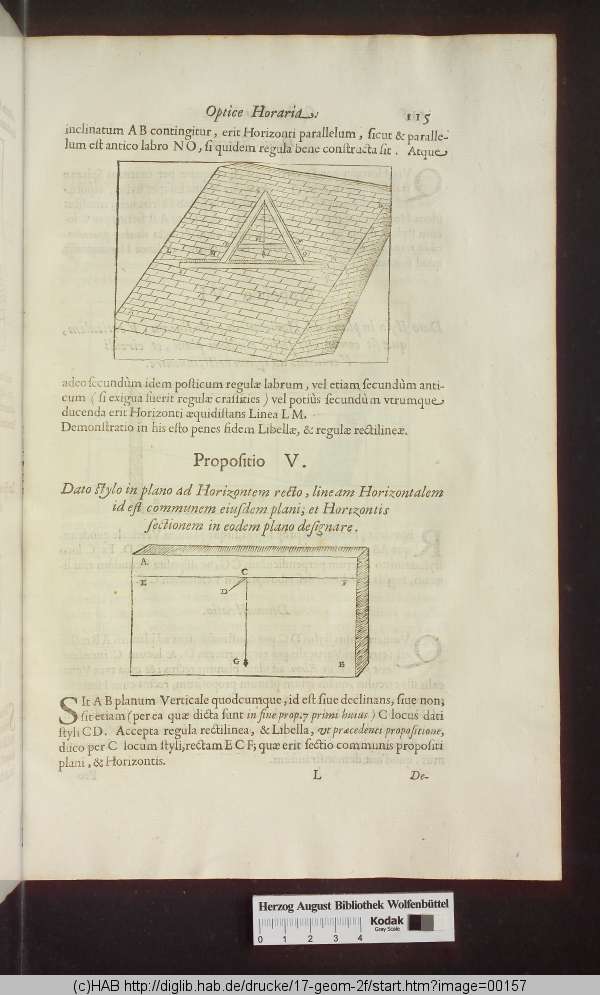 Optice Horariæ. 115
inclinatum AB contingitur, erit Horizonti parallelum, sicut & paralle-
lum est antico labro NO, si quidem regula bene constructa sit. Atque
adeo secundùm idem posticum regulæ labrum, vel etiam secundùm anti-
cum ( si exigua fuerit regulæ crassities ) vel potiùs secundùm vtrumque
ducenda erit Horizonti æquidistans Linea LM.
Demonstratio in his esto penes fidem Libellæ, & regulæ rectilineæ.
Propositio V.
Dato stylo in plano ad Horizontem recto, lineam Horizontalem
id est communem eiusdem plani, et Horizontis
sectionem in eodem plano designare.
A.
C
E F
D
G B
SIt AB planum Verticale quodcumque, id est siue declinans, siue non;
sit etiam (per ea quæ dicta sunt in fine prop. 7 primi huius ) C locus dati
styli CD. Accepta regula rectilinea, & Libella, vt præcedenti propositione,
duco per C locum styli, rectam ECF; quæ erit sectio communis propositi
plani, & Horizontis.
L De-
Herzog August Bibliothek Wolfenbüttel
Kodak
Gray Scale
0 1 2 3 4
(c)HAB http://diglib.hab.de/drucke/17-geom-2f/start.htm?image=00157